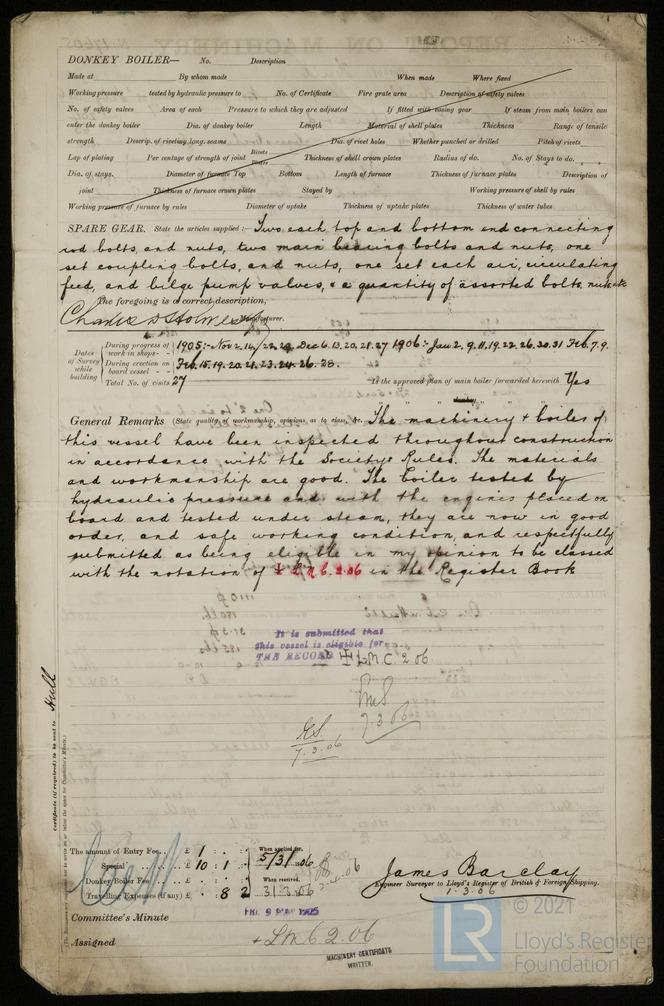 DONKEY BOILER— No. Description
Made at By whom made When made Where fixed
Working pressure tested by hydraulic pressure to No. of Certificate Fire grate area Description of safety valves
No. of safety valves Area of each Pressure to which they are adjusted If fitted with easing gear If steam from main boilers can
enter the donkey boiler Dia. of donkey boiler Length Material of shell plates Thickness Range of tensile
strength Descrip. of riveting long. seams Dia. of rivet holes Whether punched or drilled Pitch of rivets
Lap of plating Per centage of strength of joint Rivets Plates Thickness of shell crown plates Radius of do. No. of Stays to do.
Dia. of stays. Diameter of furnace Top Bottom Length of furnace Thickness of furnace plates Description of
joint Thickness of furnace crown plates Stayed by Working pressure of shell by rules
Working pressure of furnace by rules Diameter of uptake Thickness of uptake plates Thickness of water tubes
SPARE GEAR. State the articles supplied:— Two each top and bottom end connecting
rod bolts, and nuts, two main bearing bolts and nuts, one
set coupling bolts, and nuts, one set each air, circulating
feed, and bilge pump valves, & a quantity of assorted bolts, nuts etc
The foregoing is a correct description,
Charles D Holmes & Co Manufacturer.
Dates of Survey while building
During progress of work in shops - - 1905:- Nov 2. 14. 22. 29. Dec 6. 13. 20. 21. 27 1906:- Jan 2. 9. 11. 19. 22. 26. 30. 31 Feb. 7. 9.
During erection on board vessel - - Feb. 15. 19. 20. 21. 23. 24. 26. 28.
Total No. of visits 27 Is the approved plan of main boiler forwarded herewith Yes
" " " donkey " " "
General Remarks (State quality of workmanship, opinions as to class, &c. The machinery & boiler of
this vessel have been inspected throughout construction
in accordance with the Society's Rules. The materials
and workmanship are good. The boiler tested by
hydraulic pressure and with the engines placed on
board and tested under steam, they are now in good
order, and safe working condition, and respectfully
submitted as being eligible in my opinion to be classed
with the notation of ✠ L.M.C. 2.06 in the Register Book
It is submitted that
this vessel is eligible for
THE RECORD ✠ L.M.C. 2 06
7.3.06
7.3.06
Certificate (if required) to be sent to Hull
The amount of Entry Fee . . £ 1 : :
Special . . . . £ 10 : 1 :
Donkey Boiler Fee . . . £ : :
Travelling Expenses (if any) £ : 8 : 2
When applied for,
5/3/06
When received,
31.3.06
2.4.06
James Barclay
Engineer Surveyor to Lloyd's Register of British & Foreign Shipping.
1.3.06
Committee's Minute
Assigned + L.M.C. 2.06
MACHINERY CERTIFICATE
WRITTEN.
LR
© 2021
Lloyd's Register
Foundation